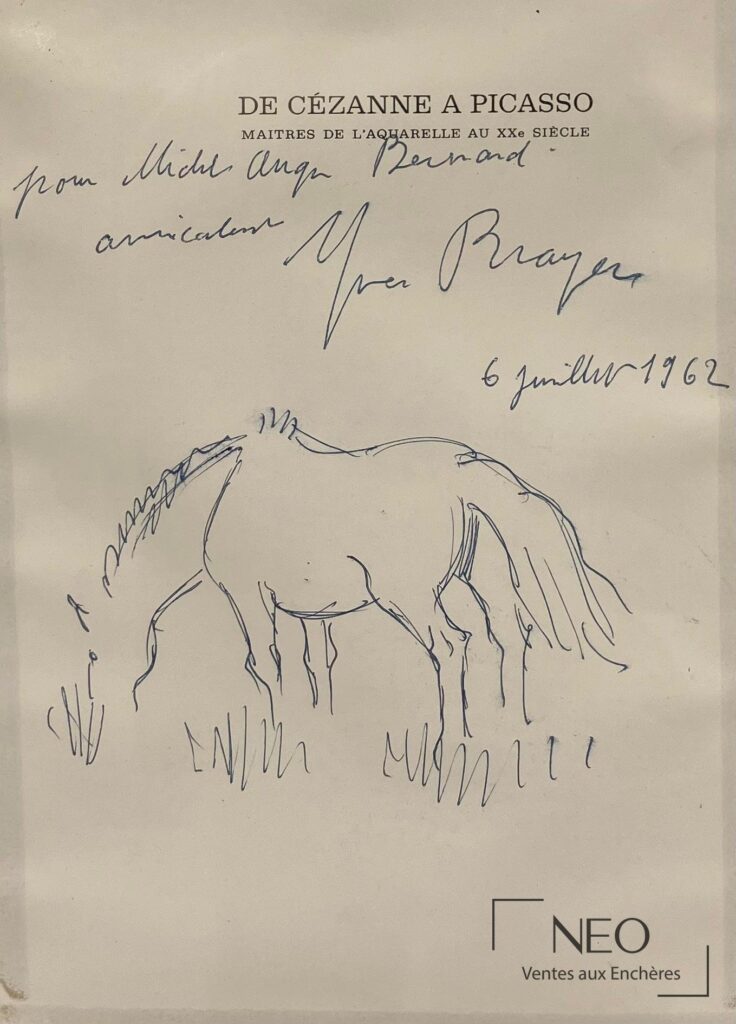 DE CÉZANNE A PICASSO
MAITRES DE L'AQUARELLE AU XXe SIÈCLE
pour Michel Ange Bernard
amicalement Yves Brayer
6 juillet 1962
NEO
Ventes aux Enchères